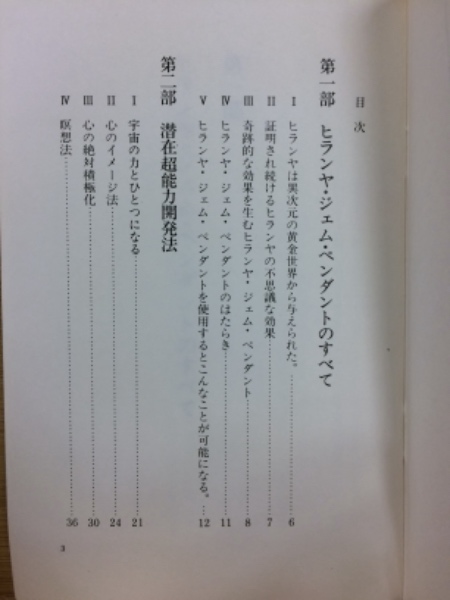 目次
第一部 ヒランヤ・ジェム・ペンダントのすべて
I ヒランヤは異次元の黄金世界から与えられた。……6
II 証明され続けるヒランヤの不思議な効果……7
III 奇跡的な効果を生むヒランヤ・ジェム・ペンダント……8
IV ヒランヤ・ジェム・ペンダントのはたらき……11
V ヒランヤ・ジェム・ペンダントを使用するとこんなことが可能になる。……12
第二部 潜在超能力開発法
I 宇宙の力とひとつになる……21
II 心のイメージ法……24
III 心の絶対積極化……30
IV 瞑想法……36
3